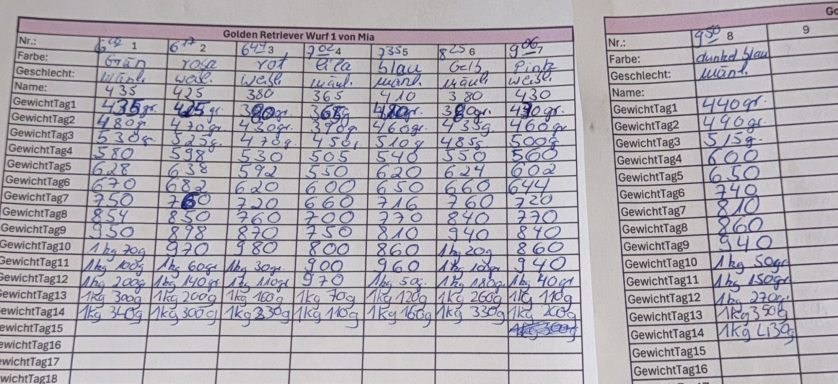 Golden Retriever Wurf 1 von Mia
Nr.: 1 6 17 2 6 47 3 7 02 4 7 35 5 8 25 6 9 06 7
Farbe: Grün rosa rot lila blau Gelb Pink
Geschlecht: männl. weibl. weibl. männl. männl. männl. weibl.
Name: 435 425 380 365 410 380 430
GewichtTag1 435gr. 425gr. 380gr. 365g 380gr.
GewichtTag2 480gr. 470gr 430gr 390g 460gr. 435g 460gr
GewichtTag3 530gr. 525g. 470g 450g 510g 485g 500g
GewichtTag4 580 598 530 505 540 550 560
GewichtTag5 628 638 592 550 620 624 602
GewichtTag6 670 682 620 600 650 660 644
GewichtTag7 750 760 720 660 716 760 720
GewichtTag8 854 850 760 700 770 840 770
GewichtTag9 950 898 870 750 810 940 840
GewichtTag10 1kg 70g 970 980 800 860 1kg 20g 860
GewichtTag11 1kg 100g 1kg 60gr 1kg 30gr 900 960 1kg 10gr 940
GewichtTag12 1kg 200g 1kg 140gr 1kg 110gr 970 1kg 50g. 1kg 180g. 1kg 40gr
GewichtTag13 1kg 300g 1kg 200g 1kg 160g 1kg 70g 1kg 120g 1kg 260g 1kg 110g
GewichtTag14 1kg 340g 1kg 300g 1kg 230g 1kg 110g 1kg 160g 1kg 330g 1kg 200g
ewichtTag15
ewichtTag16
wichtTag17
wichtTag18
Go
Nr.: 9 50 8 9
Farbe: dunkel blau
Geschlecht: männl.
Name:
GewichtTag1 440gr.
GewichtTag2 490gr.
GewichtTag3 515g.
GewichtTag4 600
GewichtTag5 650
GewichtTag6 740
GewichtTag7 810
GewichtTag8 860
GewichtTag9 940
GewichtTag10 1kg 50gr.
GewichtTag11 1kg 150gr
GewichtTag12 1kg 270gr.
GewichtTag13 1kg 350g
GewichtTag14 1kg 430g
GewichtTag15
GewichtTag16